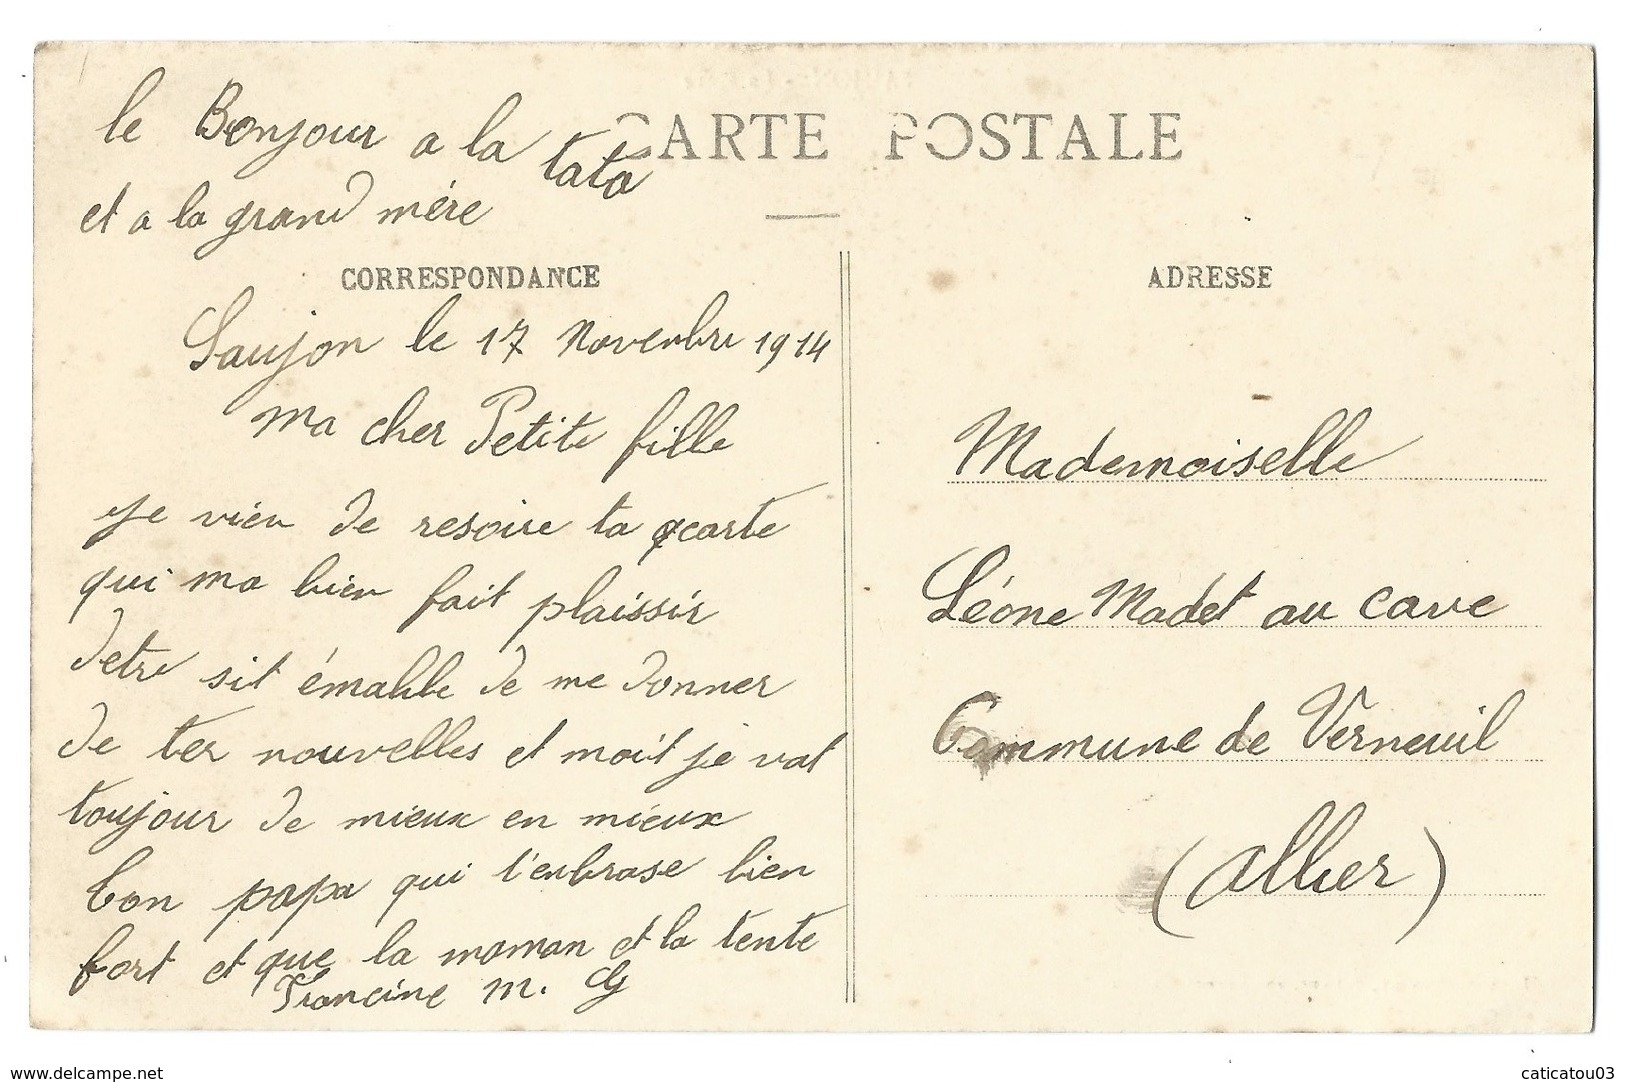 le Bonjour a la tata
et a la grand mére
CARTE POSTALE
CORRESPONDANCE
Saujon le 17 Novenbre 1914
Ma cher Petite fille
Je vien de resoire ta carte
qui ma bien fait plaissir
detre sit émable de me donner
de ter nouvelles et moit je vat
toujour de mieux en mieux
ton papa qui t'enbrase bien
fort et que la maman et la tente
Francine M. G
ADRESSE
Mademoiselle
Léone Madet au cave
Commune de Verneuil
(Allier)
www.delcampe.net
caticatou03